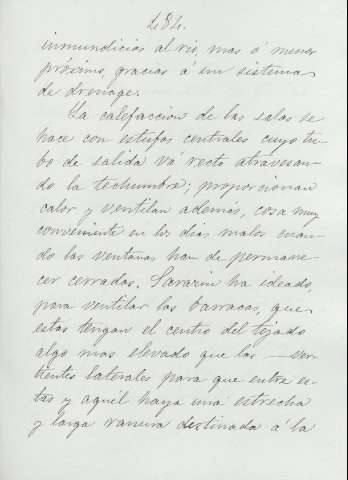 inmundicias al rio, mas ó menos
próximo, gracias á un sistema
de drenage.
La calefaccion de las salas se
hace con estufas centrales cuyo tu-
bo de salida vá recto atravesan-
do la techumbre; proporcionan
calor y ventilan además, cosa muy
conveniente en los dias malos cuan-
do las ventanas han de permane-
cer cerradas. Sararin ha ideado,
para ventilar las barracas, que
estas tengan el centro del tejado
algo mas elevado que las — ver-
tientes laterales para que entre es-
tas y aquel haya una estrecha
y larga ranura destinada á la